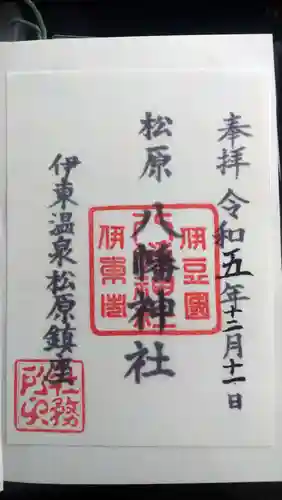 奉拝 令和五年十二月十一日
松原 八幡神社
伊東温泉松原鎮座
伊豆國
八幡神社
伊東市
社務
所印